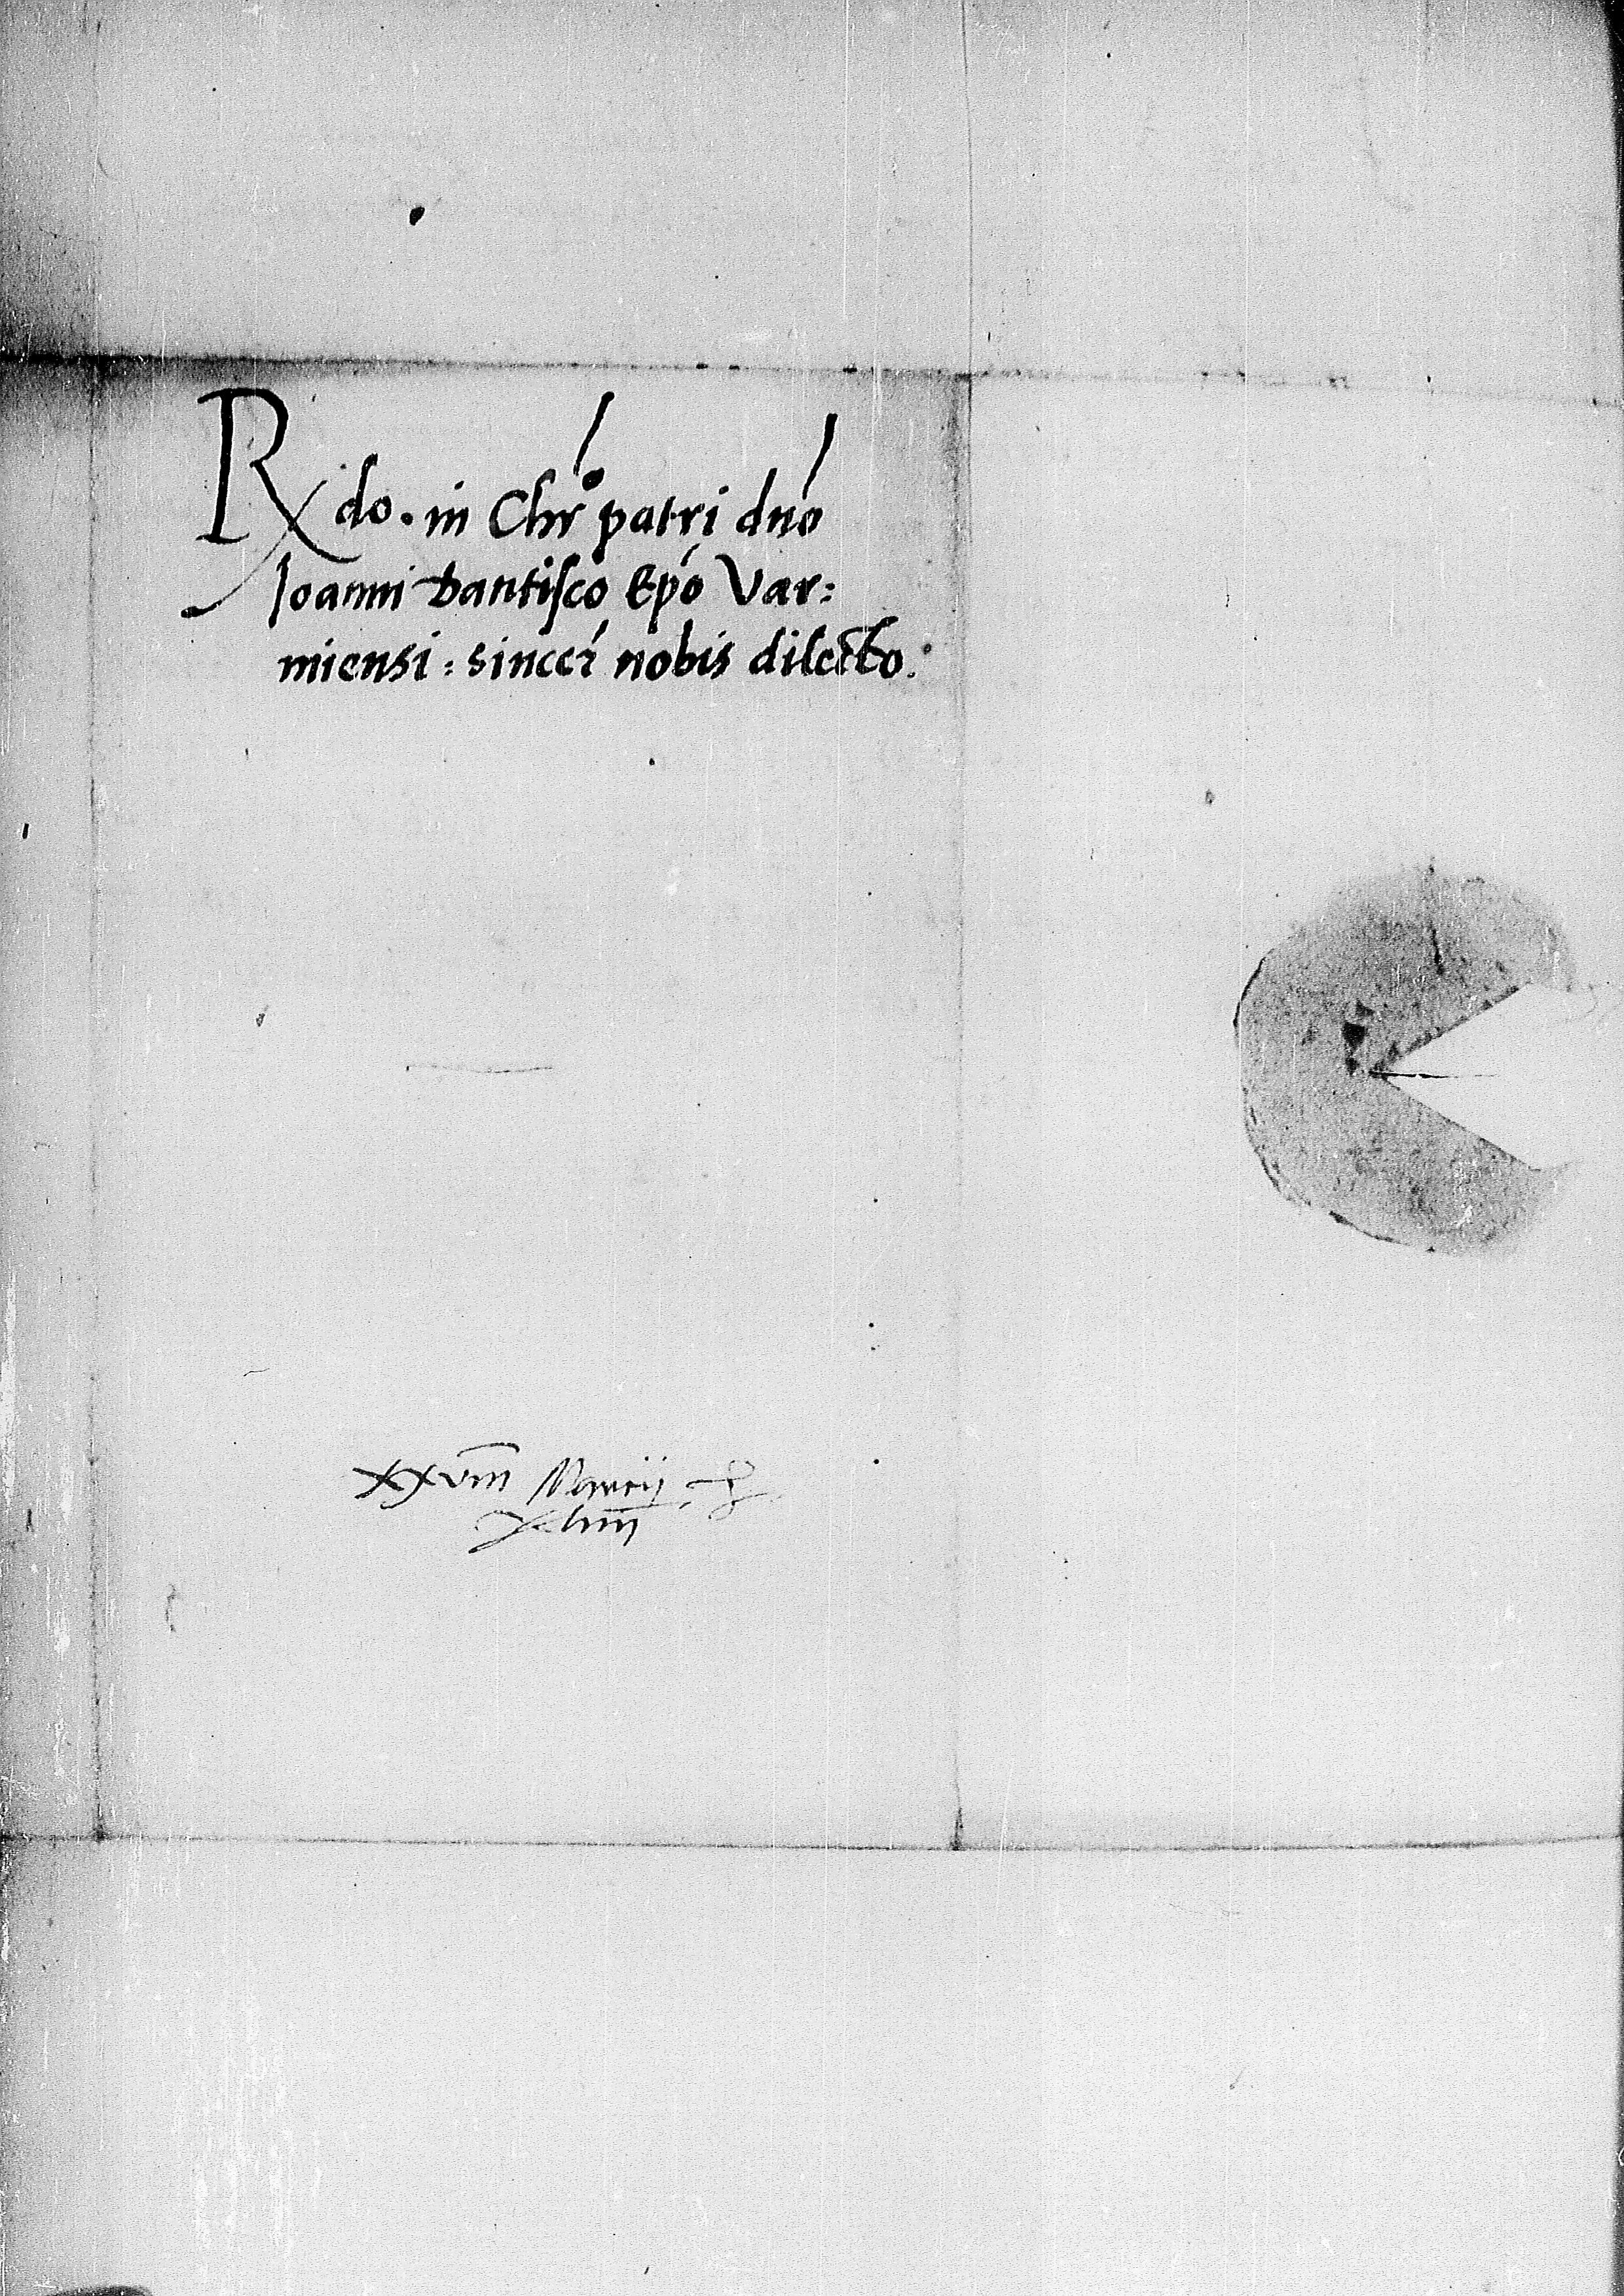 Rdo. in Chro patri dno
Joanni Dantisco Epo Var=
miensi: sincere nobis dilecto.
XXVIII Marcij
xliiii